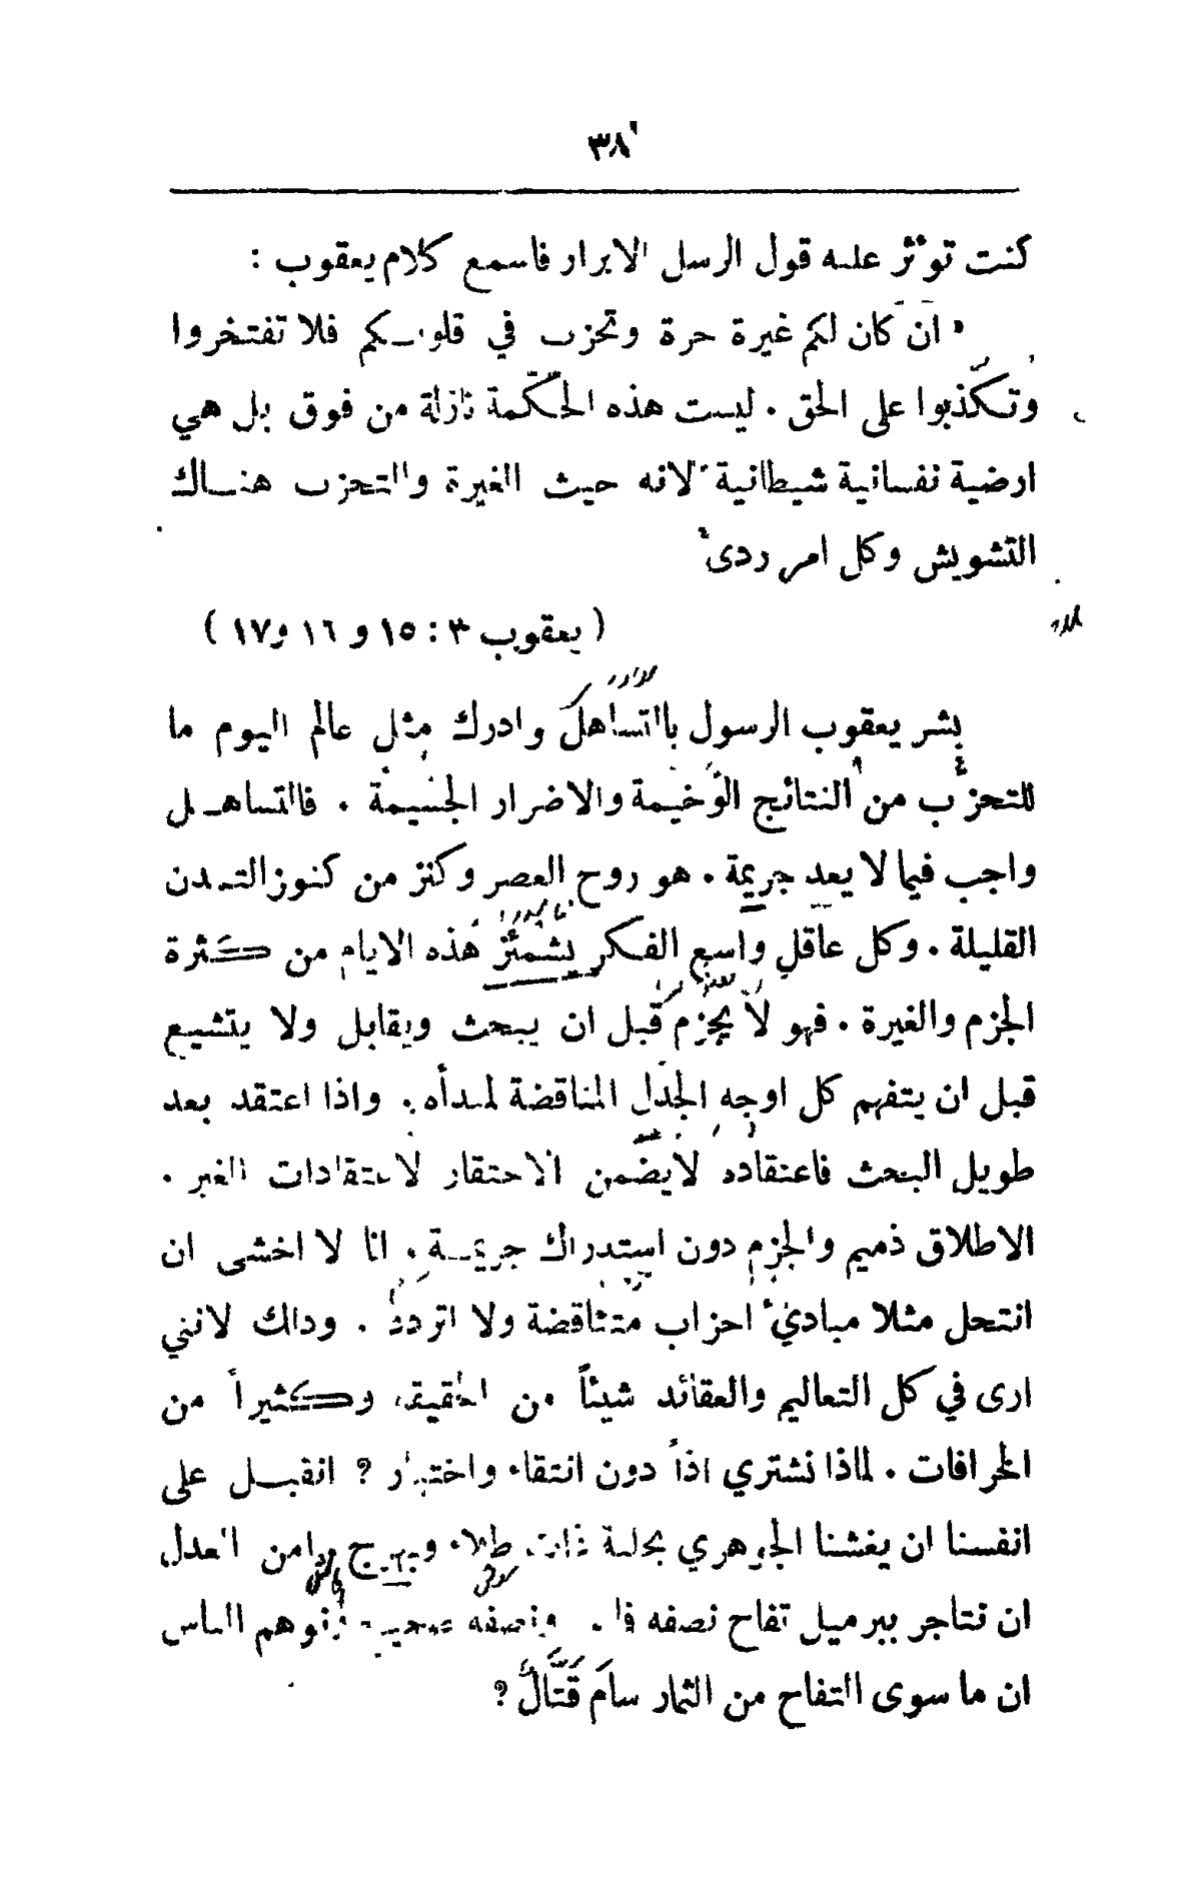 ٣٨
كنت تؤثر عليه قول الرسل الابرار فاسمع كلام يعقوب :
« ان كان لكم غيرة حرة وتحزب في قلوبكم فلا تفتخروا
وتكذبوا على الحق . ليست هذه الحكمة نازلة من فوق بل هي
ارضية نفسانية شيطانية لانه حيث الغيرة والتحزب هناك
التشويش وكل امر ردئ
( يعقوب ٣ : ١٥ و ١٦ و ١٧ )
بشر يعقوب الرسول بالتساهل وادرك مثل عالم اليوم ما
للتحزب من النتائج الوخيمة والاضرار الجسيمة . فالتساهل
واجب فيما لا يعد جريمة . هو روح العصر وكنز من كنوز التمدن
القليلة . وكل عاقل واسع الفكر يشمئز هذه الايام من كثرة
الجزم والغيرة . فهو لا يجزم قبل ان يبحث ويقابل ولا يتشيع
قبل ان يتفهم كل اوجه الجدل المناقضة لمبدأه . واذا اعتقد بعد
طويل البحث فاعتقاده لا يضمن الاحتقار لاعتقادات الغير .
الاطلاق ذميم والجزم دون استدراك جريمة . انا لا اخشى ان
انتحل مثلا مبادئ احزاب متناقضة ولا اتردد . وذاك لانني
ارى في كل التعاليم والعقائد شيئاً من الحقيقة وكثيراً من
الخرافات . لماذا نشتري اذاً دون انتقاء واختبار ? انقبل على
انفسنا ان يغشنا الجوهري بحلية ذات طلاء وبهرج وامن العدل
ان نتاجر ببرميل تفاح نصفه ونصفه صحيح ونوهم الناس
ان ما سوى التفاح من الثمار سام قتال ?